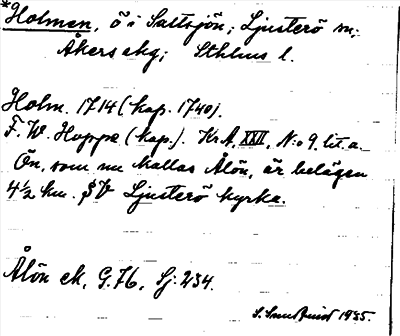 *Holmen, ö i Saltsjön; Ljusterö sn;
Åkers skg; Sthlms l.
Holm. 1714 (kop. 1740).
F. W. Hoppe (kop.). Kr A, XXII, N:o 9. lit. a.
Ön, som nu kallas Ålön, är belägen
4½ km. SV Ljusterö kyrka.
Ålön ek, G. 76, Sj. 234.
S. 1935.